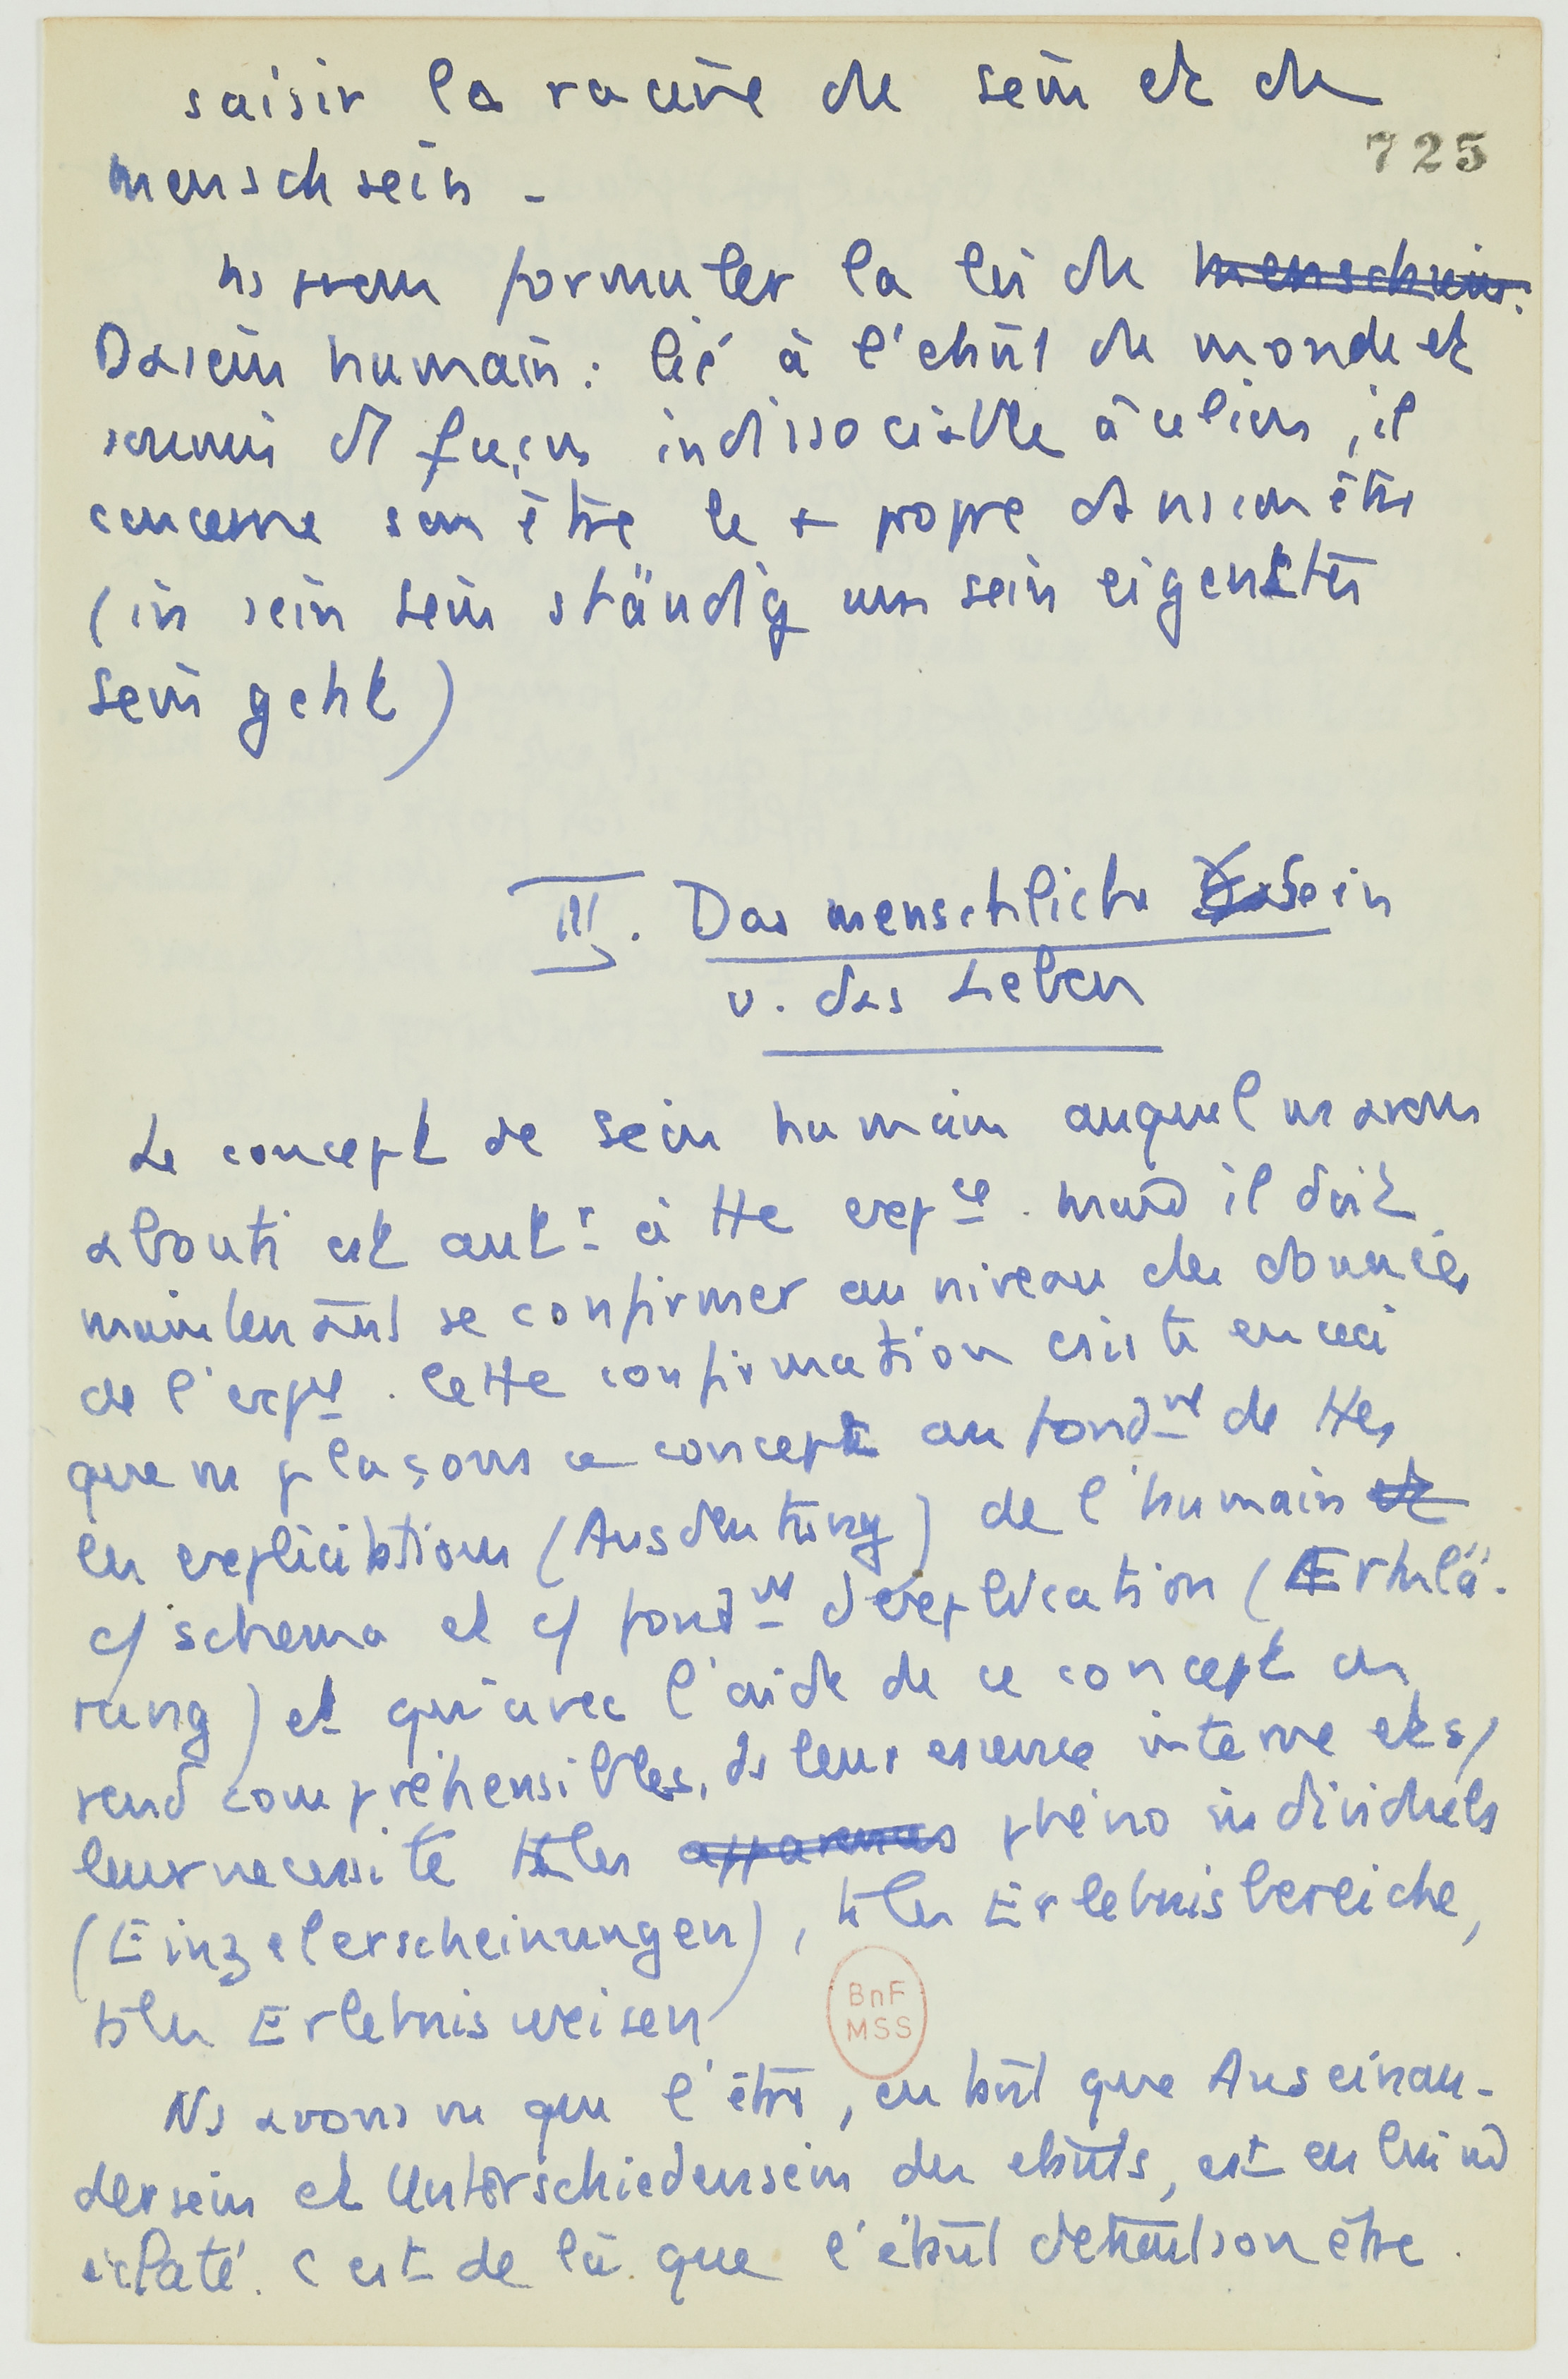 saisir la racine de sein et de
725
menschsein -
ns avons formuler la loi de menschsein.
Dasein humain : lié à l'étant du monde et
soumis de façon indissociable à celui-ci, il
concerne son être le + propre ds son être
(in sein sein ständig um sein eigenstes
sein geht)
III. Das menschliche Dasein
u. das Leben
Le concept de sein humain auquel ns avons
abouti est antr à tte expce. mais il doit
maintenant se confirmer au niveau des données
de l'expce. Cette confirmation existe en ceci
que ns plaçons ce concept au fondmt de ttes
les explicitations (Ausdeutung) de l'humain et
c/ schema et c/ fondmt d'explication (Erklä-
rung) et qu'avec l'aide de ce concept on
rend compréhensibles, ds leur essence interne et ds/
leur necessité ts les apparences phéno individuels
(Einzelerscheinungen), ts les Erlebnisbereiche,
ts les Erlebnisweisen.
BnF
MSS
Ns avons vu que l'être, en tant que Auseinan-
dersein et Unterschiedensein des étants, est en lui md
éclaté. C'est de là que l'étant détient son être.